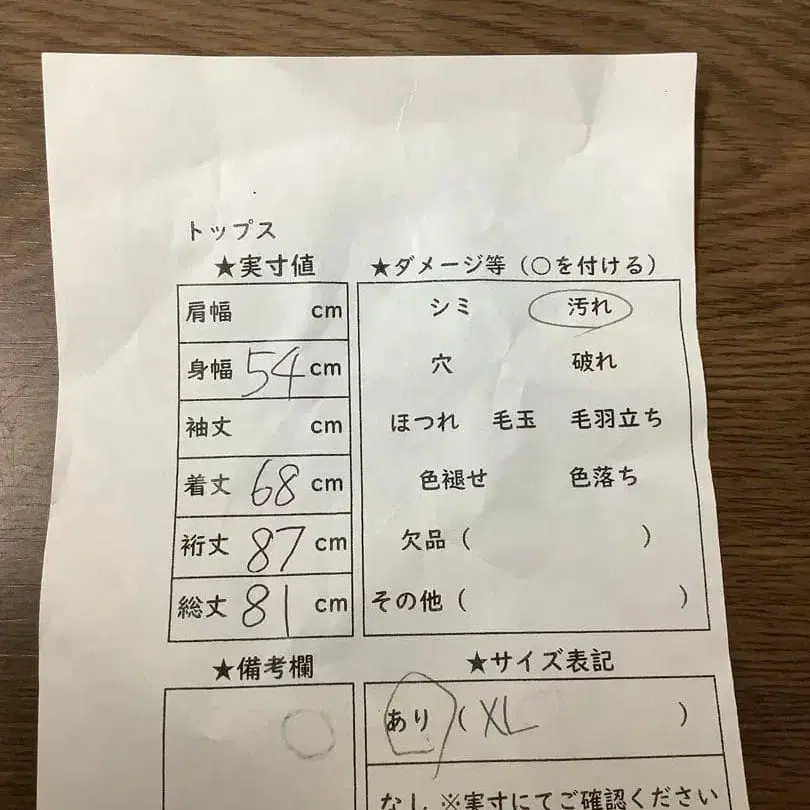 トップス
★実寸値
肩幅 cm
身幅 54 cm
袖丈 cm
着丈 68 cm
裄丈 87 cm
総丈 81 cm
★ダメージ等（○を付ける）
シミ 汚れ
穴 破れ
ほつれ 毛玉 毛羽立ち
色褪せ 色落ち
欠品（ ）
その他（ ）
★備考欄
★サイズ表記
あり（XL ）
なし ※実寸にてご確認ください